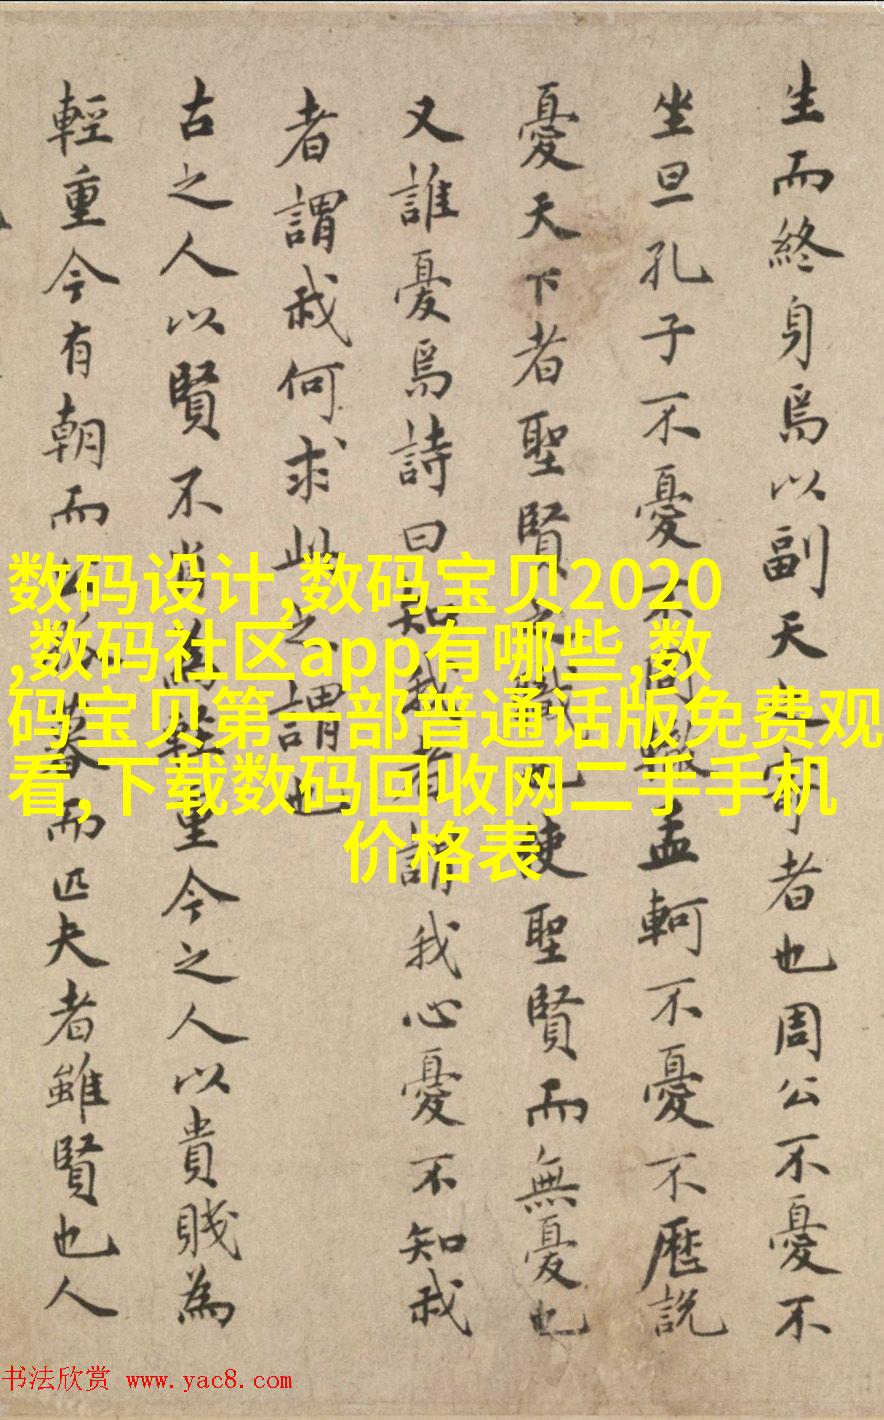 生而終身焉以副天之寄者也周公不憂不
坐旦孔子不憂不周孟軻不憂不歷説
憂天下者聖賢之職也使聖賢而無憂也
又誰憂焉詩曰知我者謂我心憂不知我
者謂我何求此之謂也
古之人以賢不肖為輕重今之人以貴賤為
輕重今有朝而公孤暮而匹夫者雖賢也人
数码设计,数码宝贝2020
,数码社区app有哪些,数
码宝贝第一部普通话版免费观
看,下载数码回收网二手手机
价格表
书法欣赏 www.yac8.com